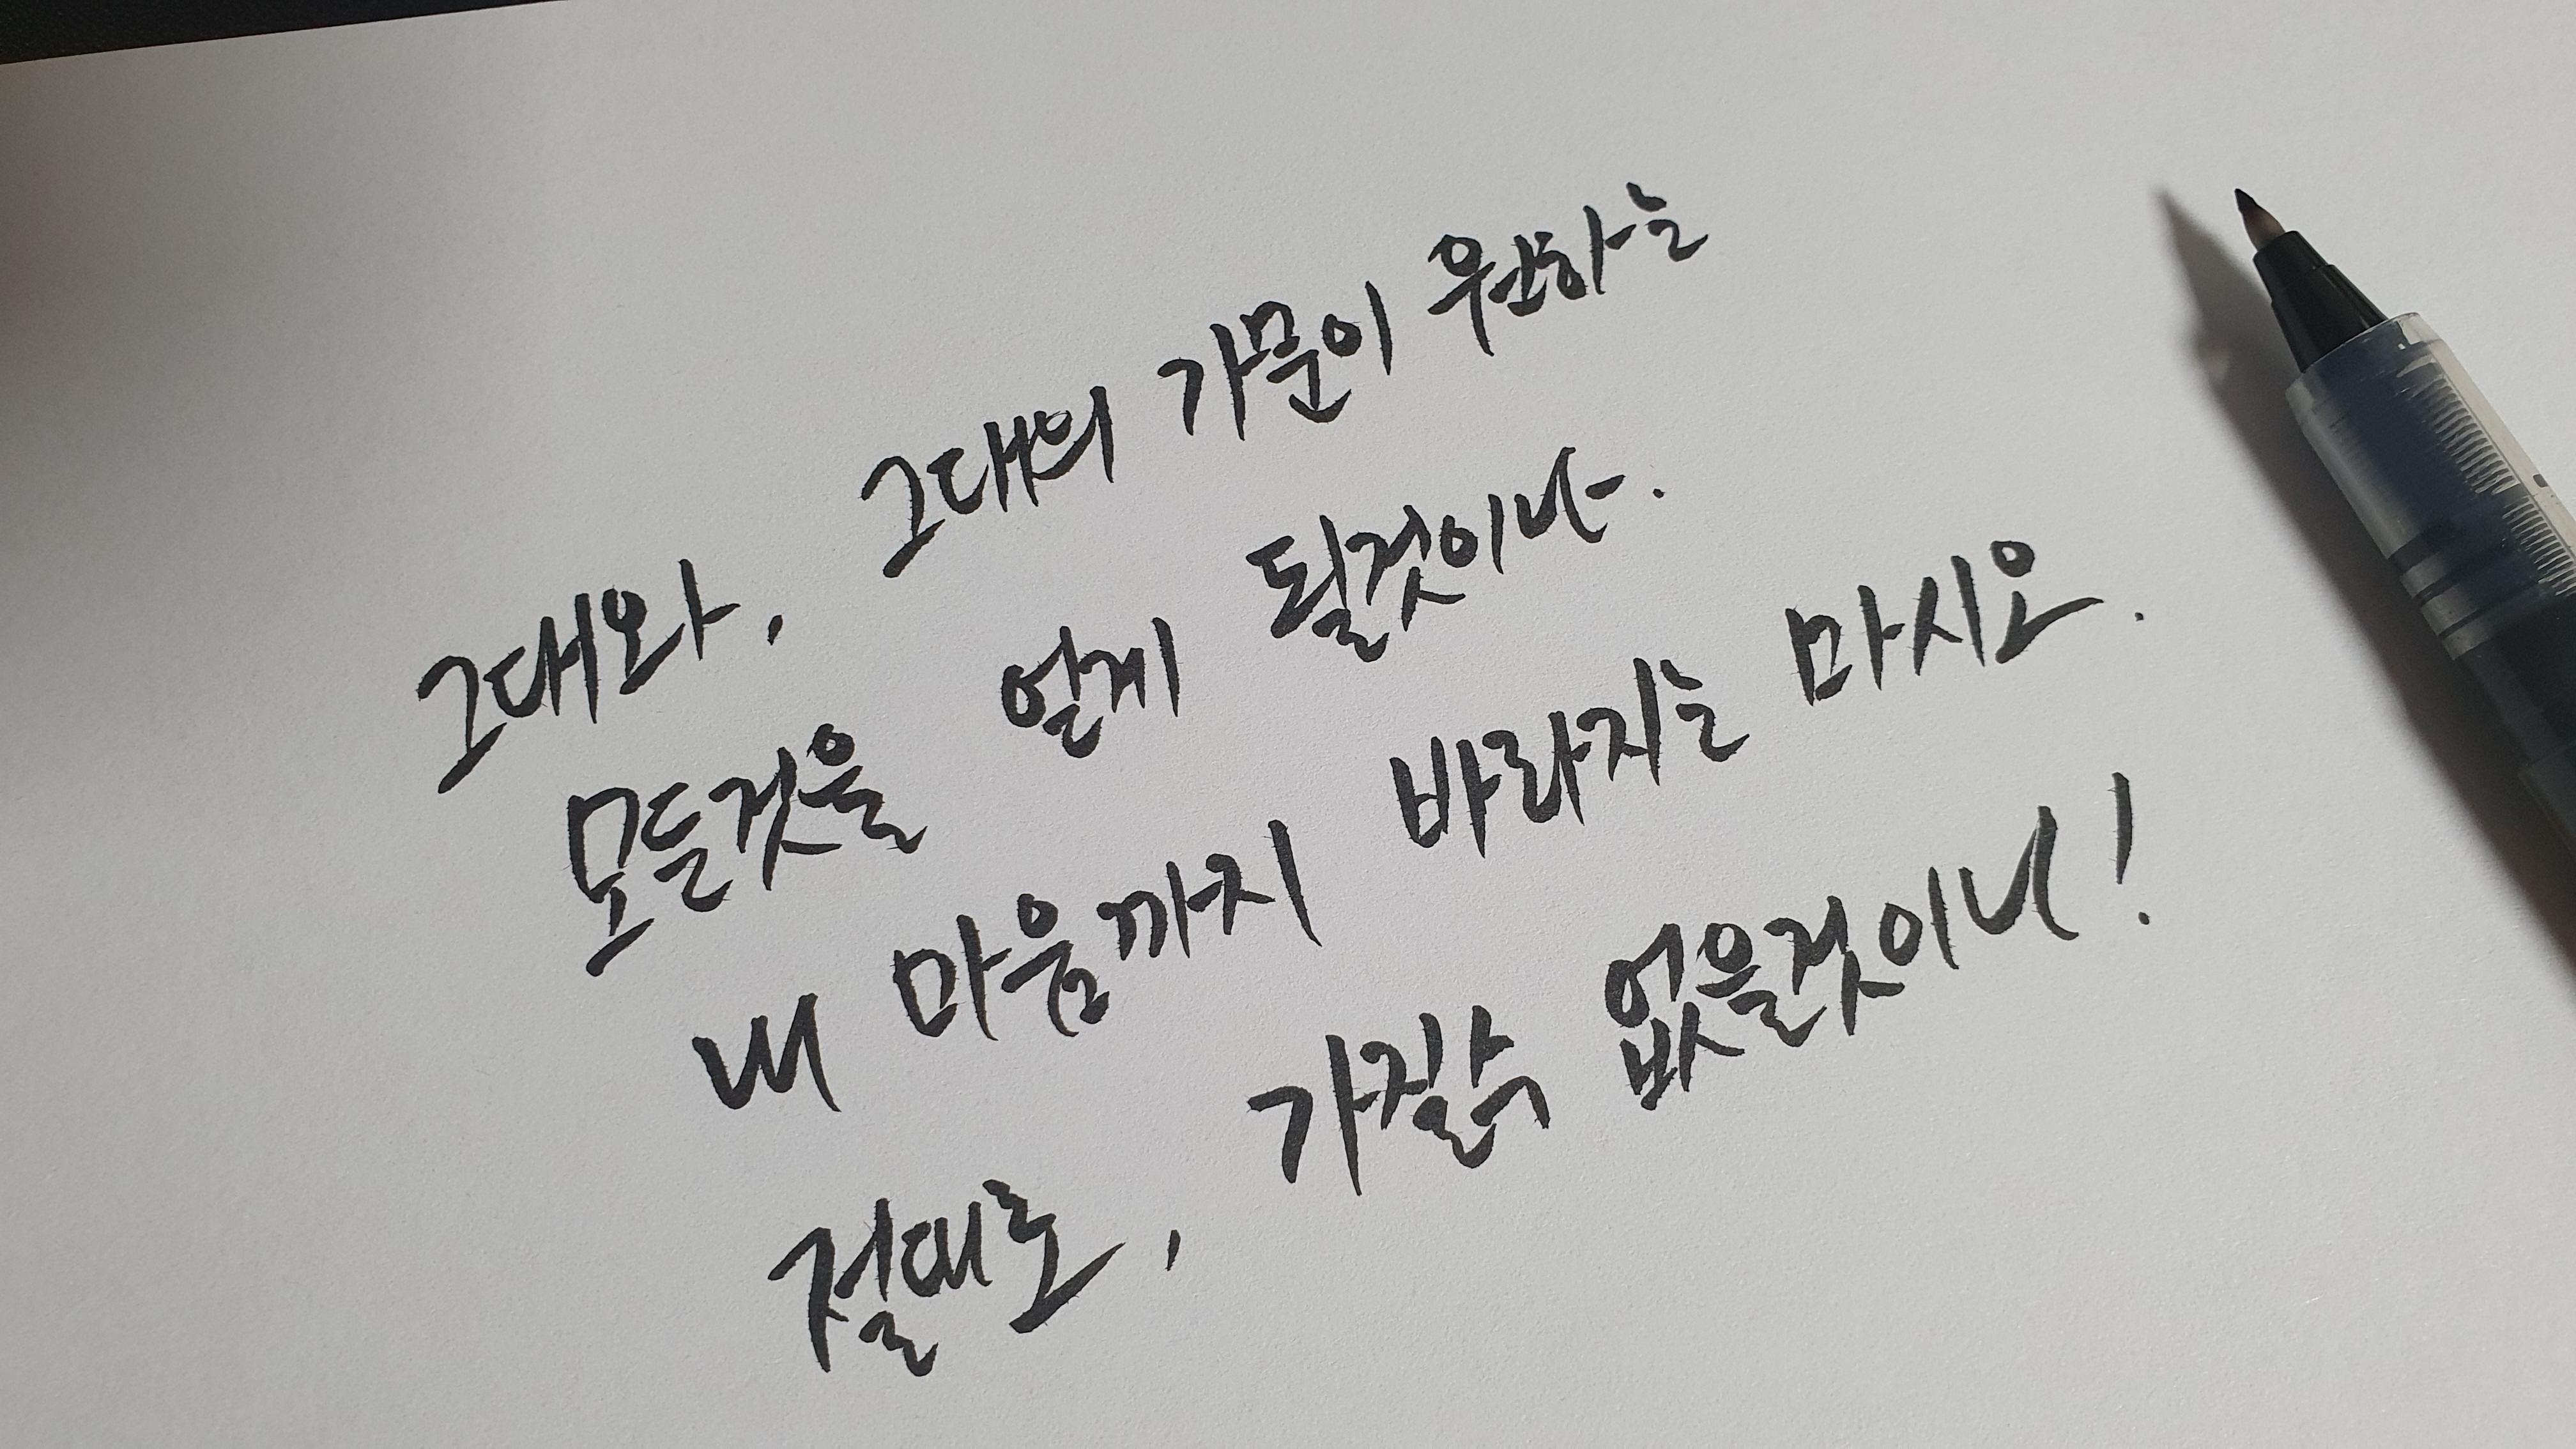 그대와, 그대의 가문이 원하는
모든것을 얻게 될것이나.
내 마음까지 바라지는 마시요.
절대로, 가질수 없을것이니!